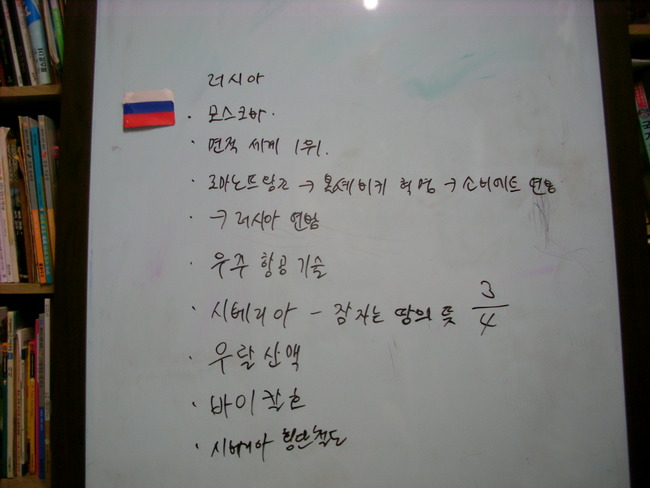 러시아
· 모스크바.
· 면적 세계 1위.
· 로마노프왕조 → 볼셰비키 혁명 → 소비에트 연방
· → 러시아 연방
· 우주 항공 기술
· 시베리아 - 잠자는 땅의 뜻 3/4
· 우랄 산맥
· 바이칼호
· 시베리아 횡단철도